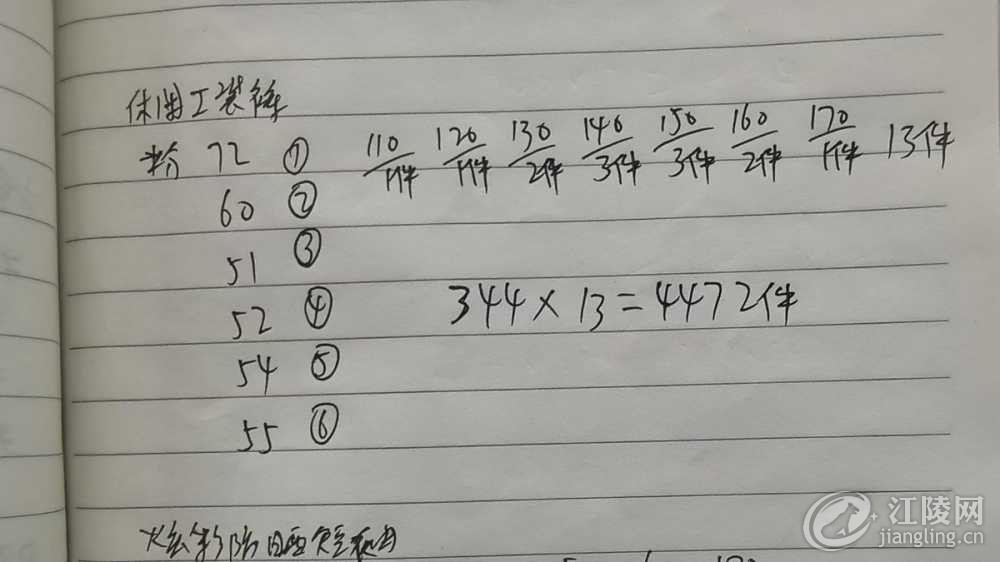 休闲工装裤
粉 72 ① 110/1件 120/1件 130/2件 140/3件 150/3件 160/2件 170/1件 13件
60 ②
51 ③
52 ④ 344×13=4472件
54 ⑤
55 ⑥
江陵网
jiangling.cn